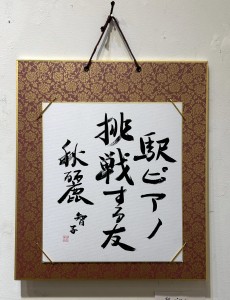 駅ピアノ
挑戦する友
秋麗
智子